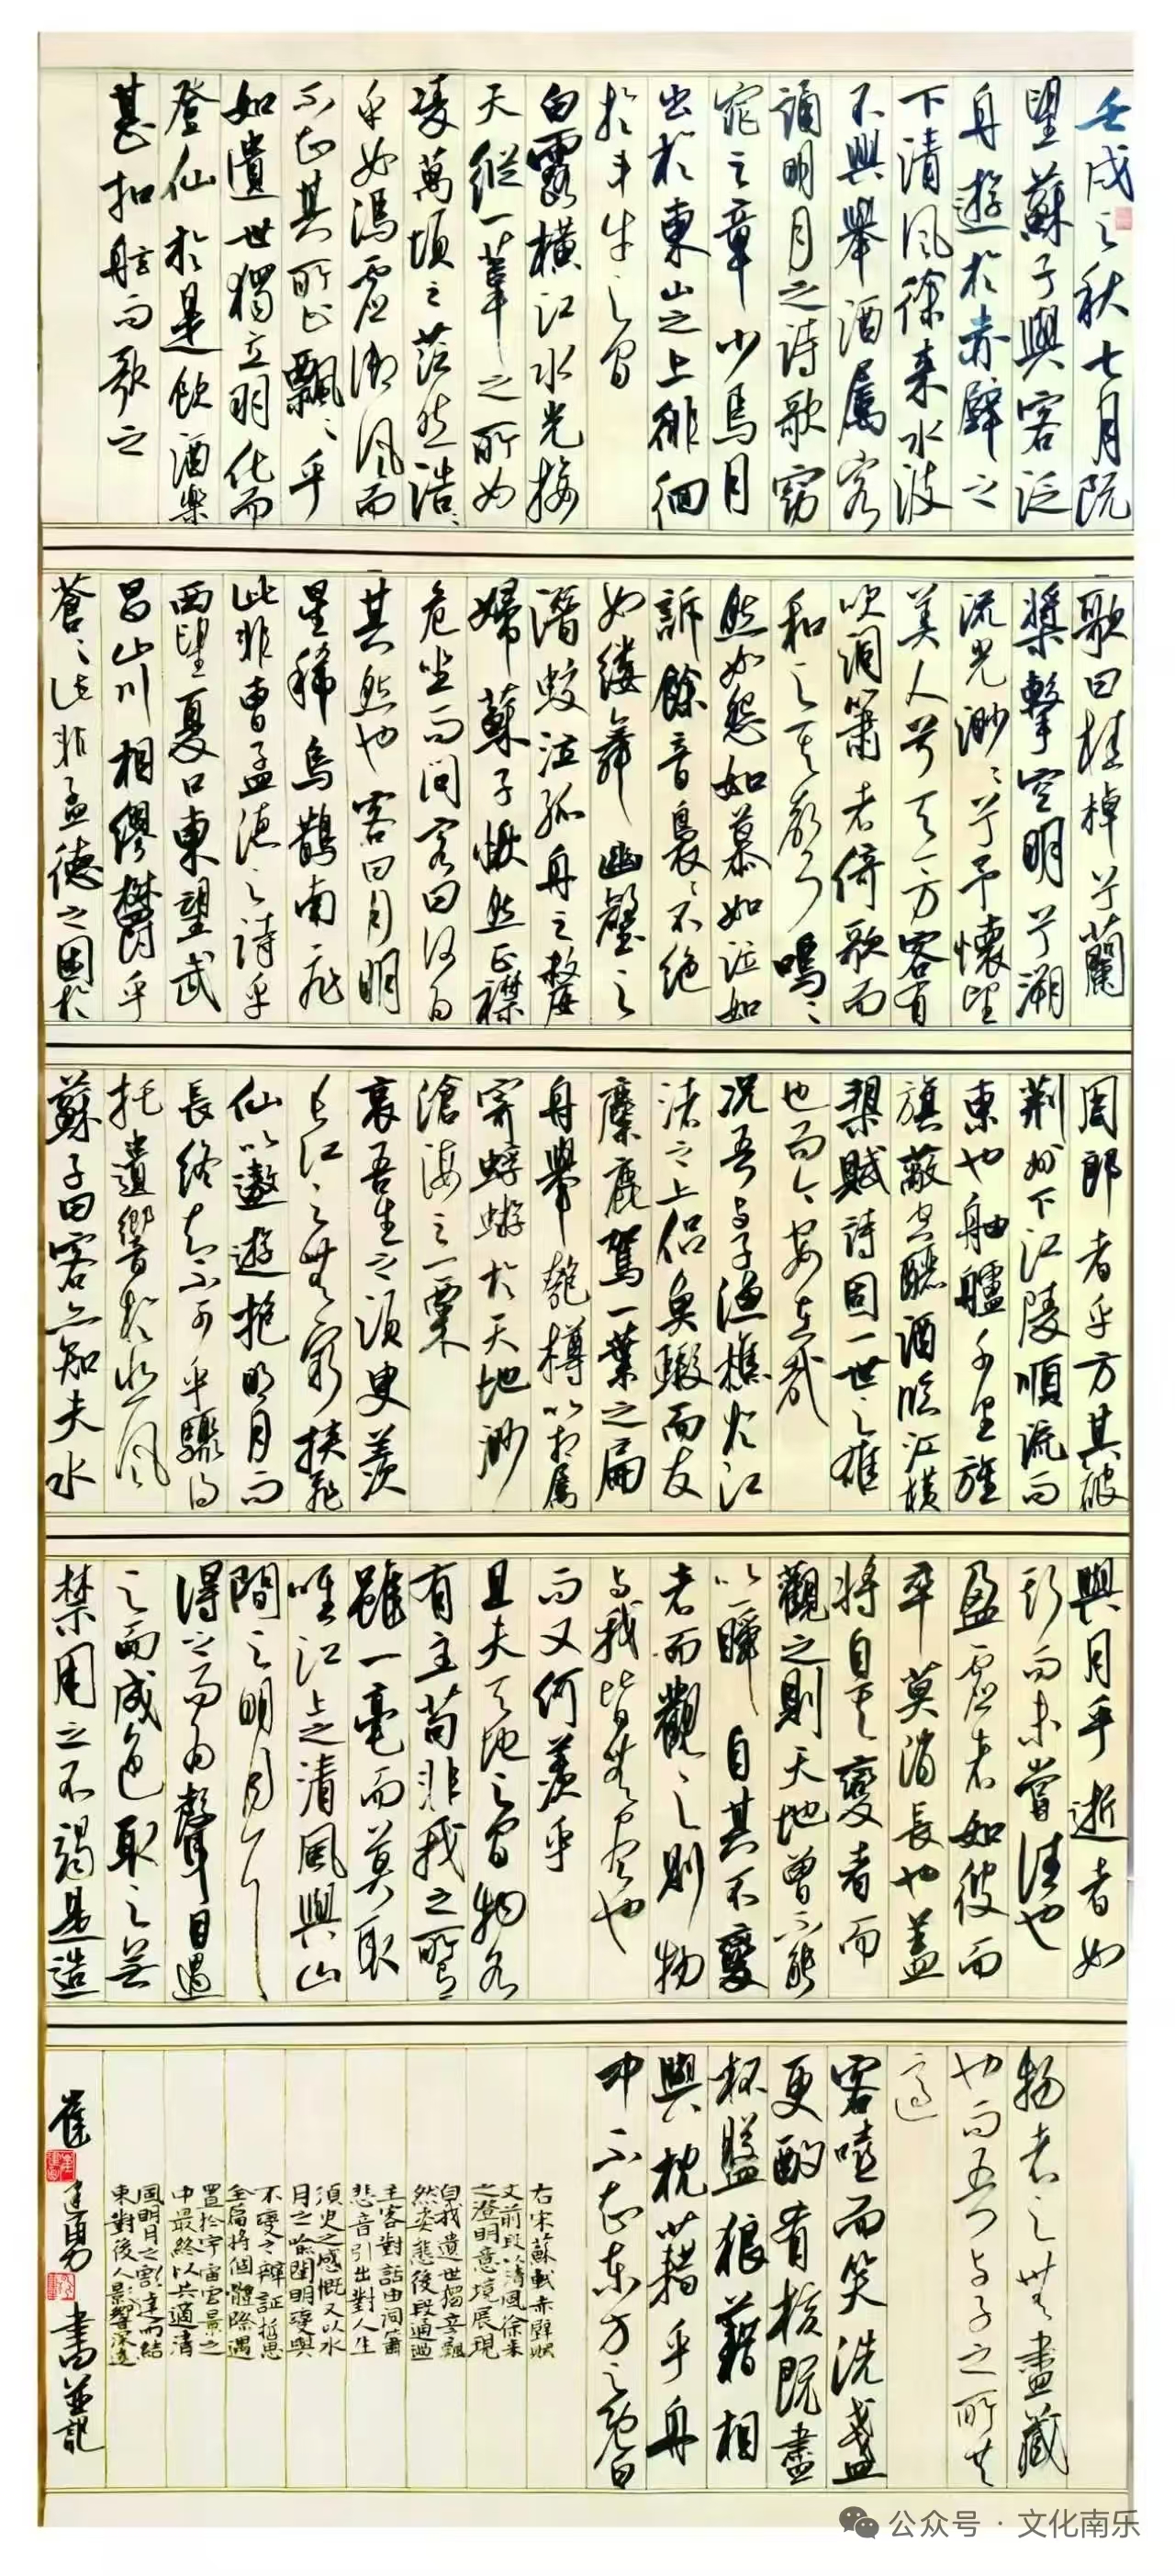 壬戌之秋七月既
望蘇子與客泛
舟遊於赤壁之
下清風徐来水波
不興舉酒屬客
誦明月之詩歌窈
窕之章少焉月
出於東山之上徘徊
於斗牛之間
白露橫江水光接
天縱一葦之所如
凌萬頃之茫然浩〻
乎如馮虛御風而
不知其所止飄〻乎
如遺世獨立羽化而
登仙於是飲酒樂
甚扣舷而歌之
歌曰桂棹兮蘭
槳擊空明兮溯
流光渺〻兮予懷望
美人兮天一方客有
吹洞簫者倚歌而
和之其聲嗚〻
然如怨如慕如泣如
訴餘音裊〻不绝
如缕舞幽壑之
潛蛟泣孤舟之嫠
婦蘇子愀然正襟
危坐而问客曰何為
其然也客曰月明
星稀烏鵲南飛
此非曹孟德之詩乎
西望夏口東望武
昌山川相繆鬱乎
蒼〻此非孟德之困於
周郎者乎方其破
荆州下江陵順流而
東也舳艫千里旌
旗蔽空釃酒臨江橫
槊賦詩固一世之雄
也而今安在哉
况吾与子漁樵於江
渚之上侣魚蝦而友
麋鹿駕一葉之扁
舟舉匏樽以相屬
寄蜉蝣於天地渺
滄海之一粟
哀吾生之須臾羨
長江之無窮挾飛
仙以遨遊抱明月而
長終知不可乎驟得
托遺響於悲風
蘇子曰客亦知夫水
與月乎逝者如
斯而未嘗往也
盈虛者如彼而
卒莫消長也蓋
將自其變者而
觀之則天地曾不能
以一瞬自其不變
者而觀之則物
与我皆無盡也
而又何羨乎
且夫天地之間物各
有主苟非我之所有
雖一毫而莫取
唯江上之清風與山
間之明月耳
得之而為聲目遇
之而成色取之無
禁用之不竭是造
物者之無盡藏
也而吾与子之所共
適
客喜而笑洗盞
更酌肴核既盡
杯盤狼藉相
與枕藉乎舟
中不知東方之既白
右宋蘇軾赤壁赋
文前段以清風徐来
之澄明意境展現
自我遺世獨立飄
然姿態後段通過
主客對話由洞簫
悲音引出對人生
須臾之感慨又以水
月之喻闡明變與
不變之辯証哲思
全篇將個體際遇
置於宇宙宏景之
中最终以共適清
風明月之豁達而結
東對後人影響深遠
崔建勇書並記
公众号 · 文化南乐